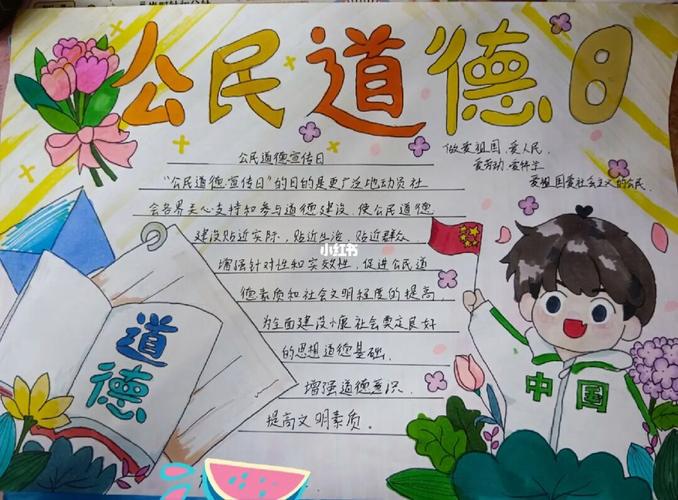 公民道德日
公民道德宣传日
"公民道德宣传日"的目的是更广泛地动员社
会各界关心支持和参与道德建设，使公民道德
建设贴近实际，贴近生活，贴近群众
增强针对性和实效性，促进公民道
德素质和社会文明程度的提高，
为全面建设小康社会奠定良好
的思想道德基础．
增强道德意识
提高文明素质。
做爱祖国．爱人民．
爱劳动．爱科学
爱祖国爱社会主义的公民．
小红书
道德
中国